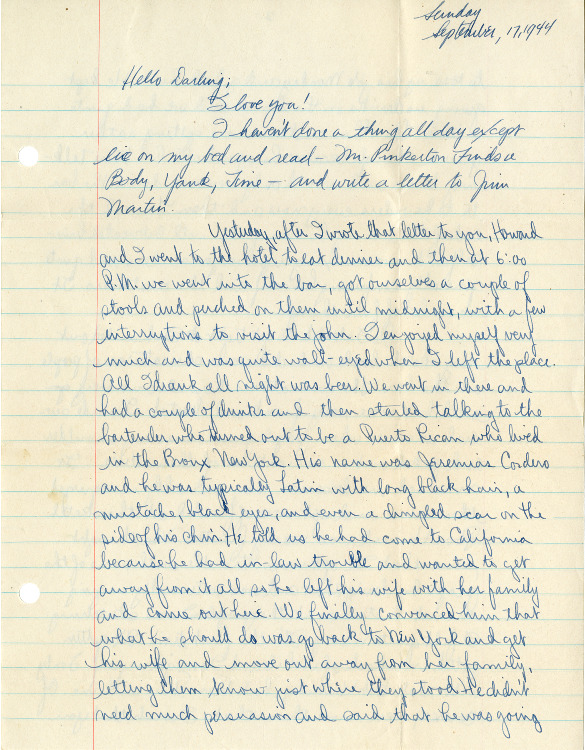 Sunday
September, 17, 1944
Hello Darling;
I love you!
I haven't done a thing all day except
lie on my bed and read - Mr. Pinkerton Finds a
Body, Yank, Time - and write a letter to Jim
Martin.
Yesterday, after I wrote that letter to you, Howard
and I went to the hotel to eat dinner and then at 6:00
P.M. we went into the bar, got ourselves a couple of
stools and perched on them until midnight, with a few
interruptions to visit the john. I enjoyed myself very
much and was quite wall-eyed when I left the place.
All I drank all night was beer. We went in there and
had a couple of drinks and then started talking to the
bartender who turned out to be a Puerto Rican who lived
in the Bronx New York. His name was Jeremias Cordero
and he was typically Latin with long black hair, a
mustache, black eyes, and even a dimpled scar on the
side of his chin. He told us he had come to California
because he had in-law trouble and wanted to get
away from it all so he left his wife with her family
and came out here. We finally convinced him that
what he should do was go back to New York and get
his wife and move out away from her family,
letting them know just where they stood. He didn't
need much persuasion and said that he was going